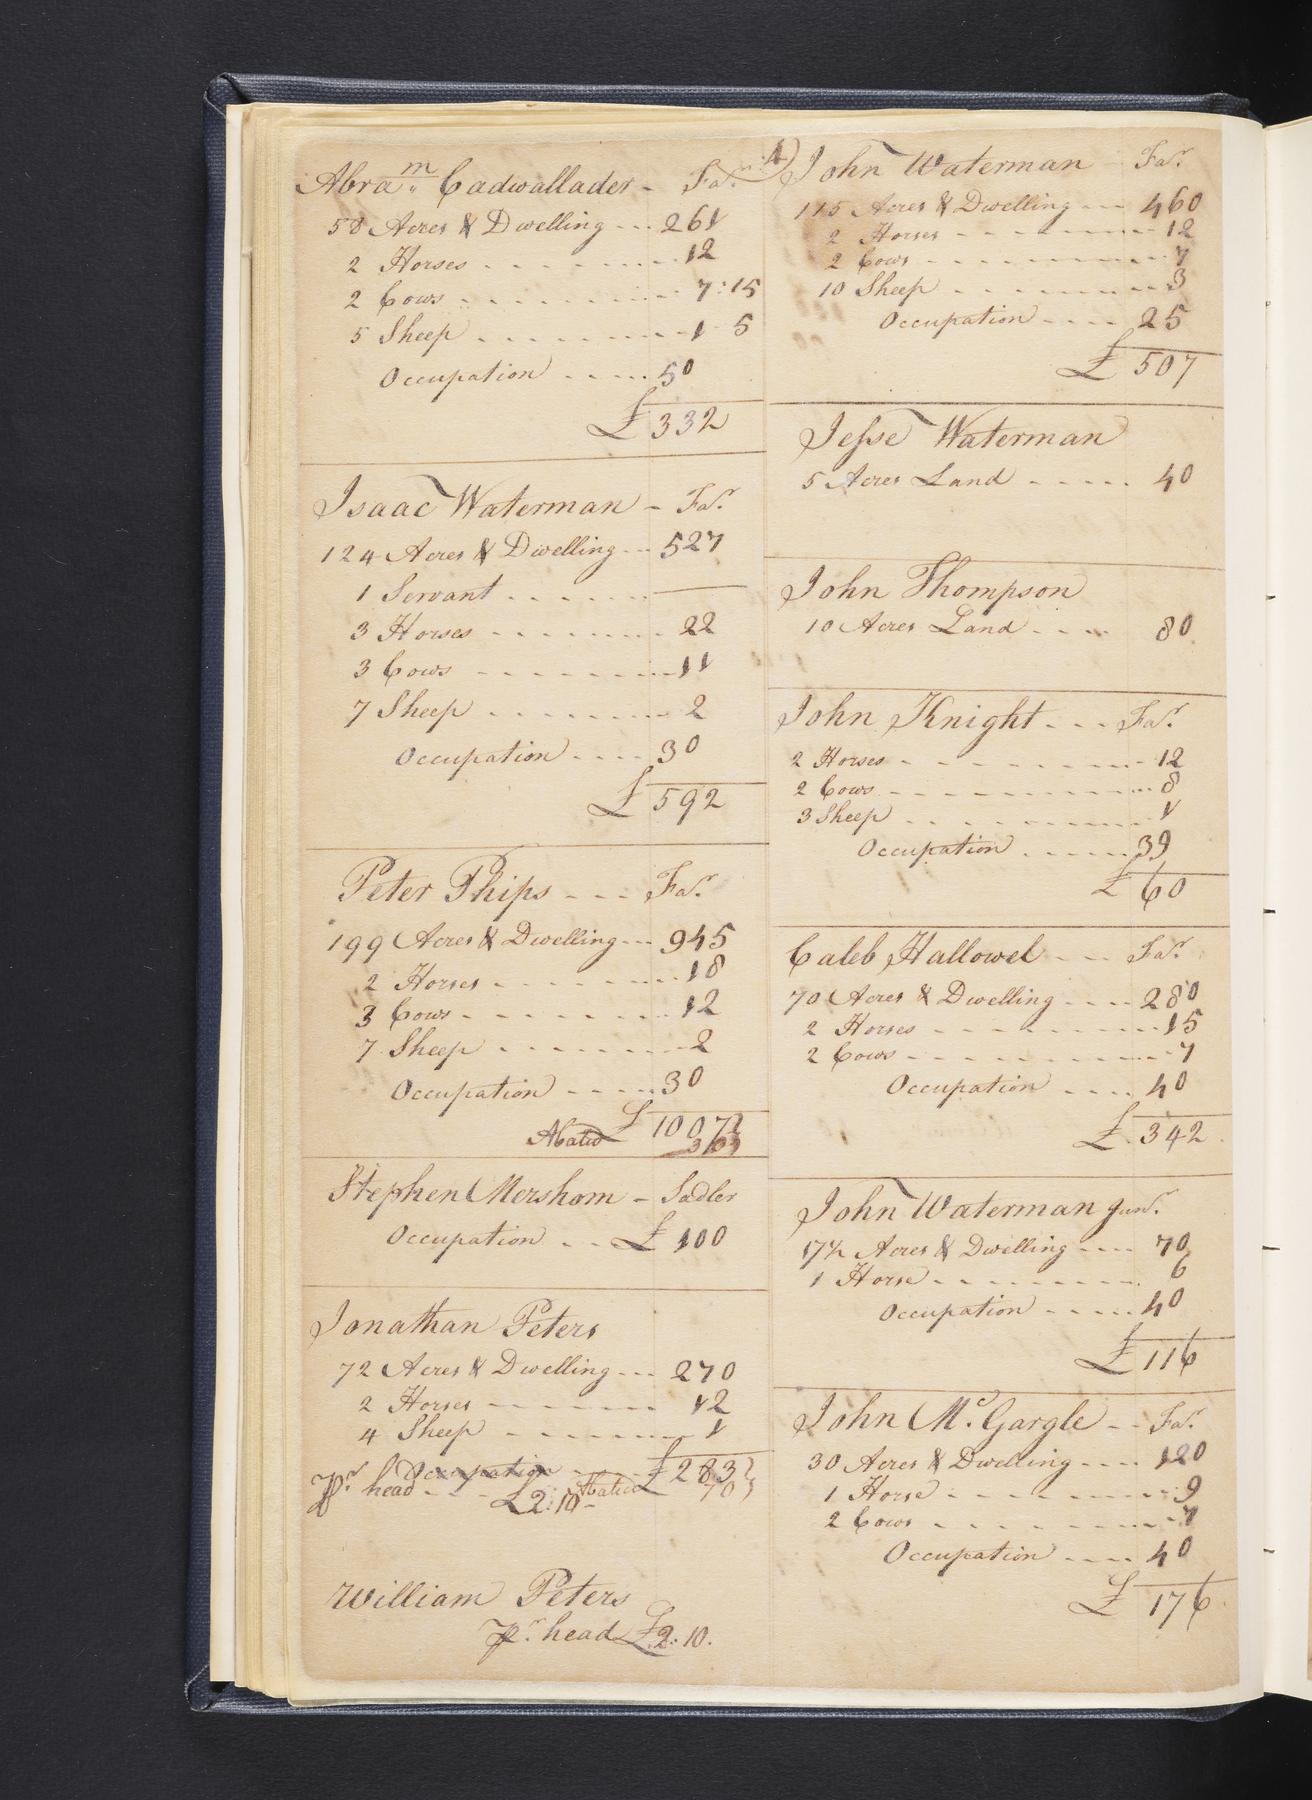 4)
Abra.m Cadwallader - Far.
58 Acres & Dwelling --- 261
2 Horses - - - - - - 12
2 Cows - - - - - - 7:15
5 Sheep - - - - - - 1 5
Occupation - - - - 50
£ 332
Isaac Waterman - Far.
124 Acres & Dwelling --- 527
1 Servant - - - - - ——
3 Horses - - - - - - 22
3 Cows - - - - - - 11
7 Sheep - - - - - - 2
Occupation - - - - 30
£ 592
Peter Phips - - - Far.
199 Acres & Dwelling --- 945
2 Horses - - - - - - 18
3 Cows - - - - - - 12
7 Sheep - - - - - - 2
Occupation - - - - 30
£ 1007
Abated
Stephen Mershom - Sadler
Occupation - - £ 100
Jonathan Peters
72 Acres & Dwelling --- 270
2 Horses - - - - - - 12
4 Sheep - - - - - - 1
Occupation - - - £ 283
Pr. head - - - £2:10 - Abated 70
William Peters
Pr. head £2:10.
John Waterman - Far.
115 Acres & Dwelling --- 460
2 Horses - - - - - - 12
2 Cows - - - - - - 7
10 Sheep - - - - - - 3
Occupation - - - - 25
£ 507
Jesse Waterman
5 Acres Land - - - - - 40
John Thompson
10 Acres Land - - - - 80
John Knight - - - Far.
2 Horses - - - - - - 12
2 Cows - - - - - - 8
3 Sheep - - - - - - 1
Occupation - - - - - 39
£ 60
Caleb Hallowel - - - Far.
70 Acres & Dwelling - - - - 280
2 Horses - - - - - - 15
2 Cows - - - - - - 7
Occupation - - - - 40
£ 342
John Waterman Junr.
17½ Acres & Dwelling - - - - 70
1 Horse - - - - - - 6
Occupation - - - - - 40
£ 116
John Mc. Gargle - - Far.
30 Acres & Dwelling - - - - 120
1 Horse - - - - - - 9
2 Cows - - - - - - 7
Occupation - - - - 40
£ 176